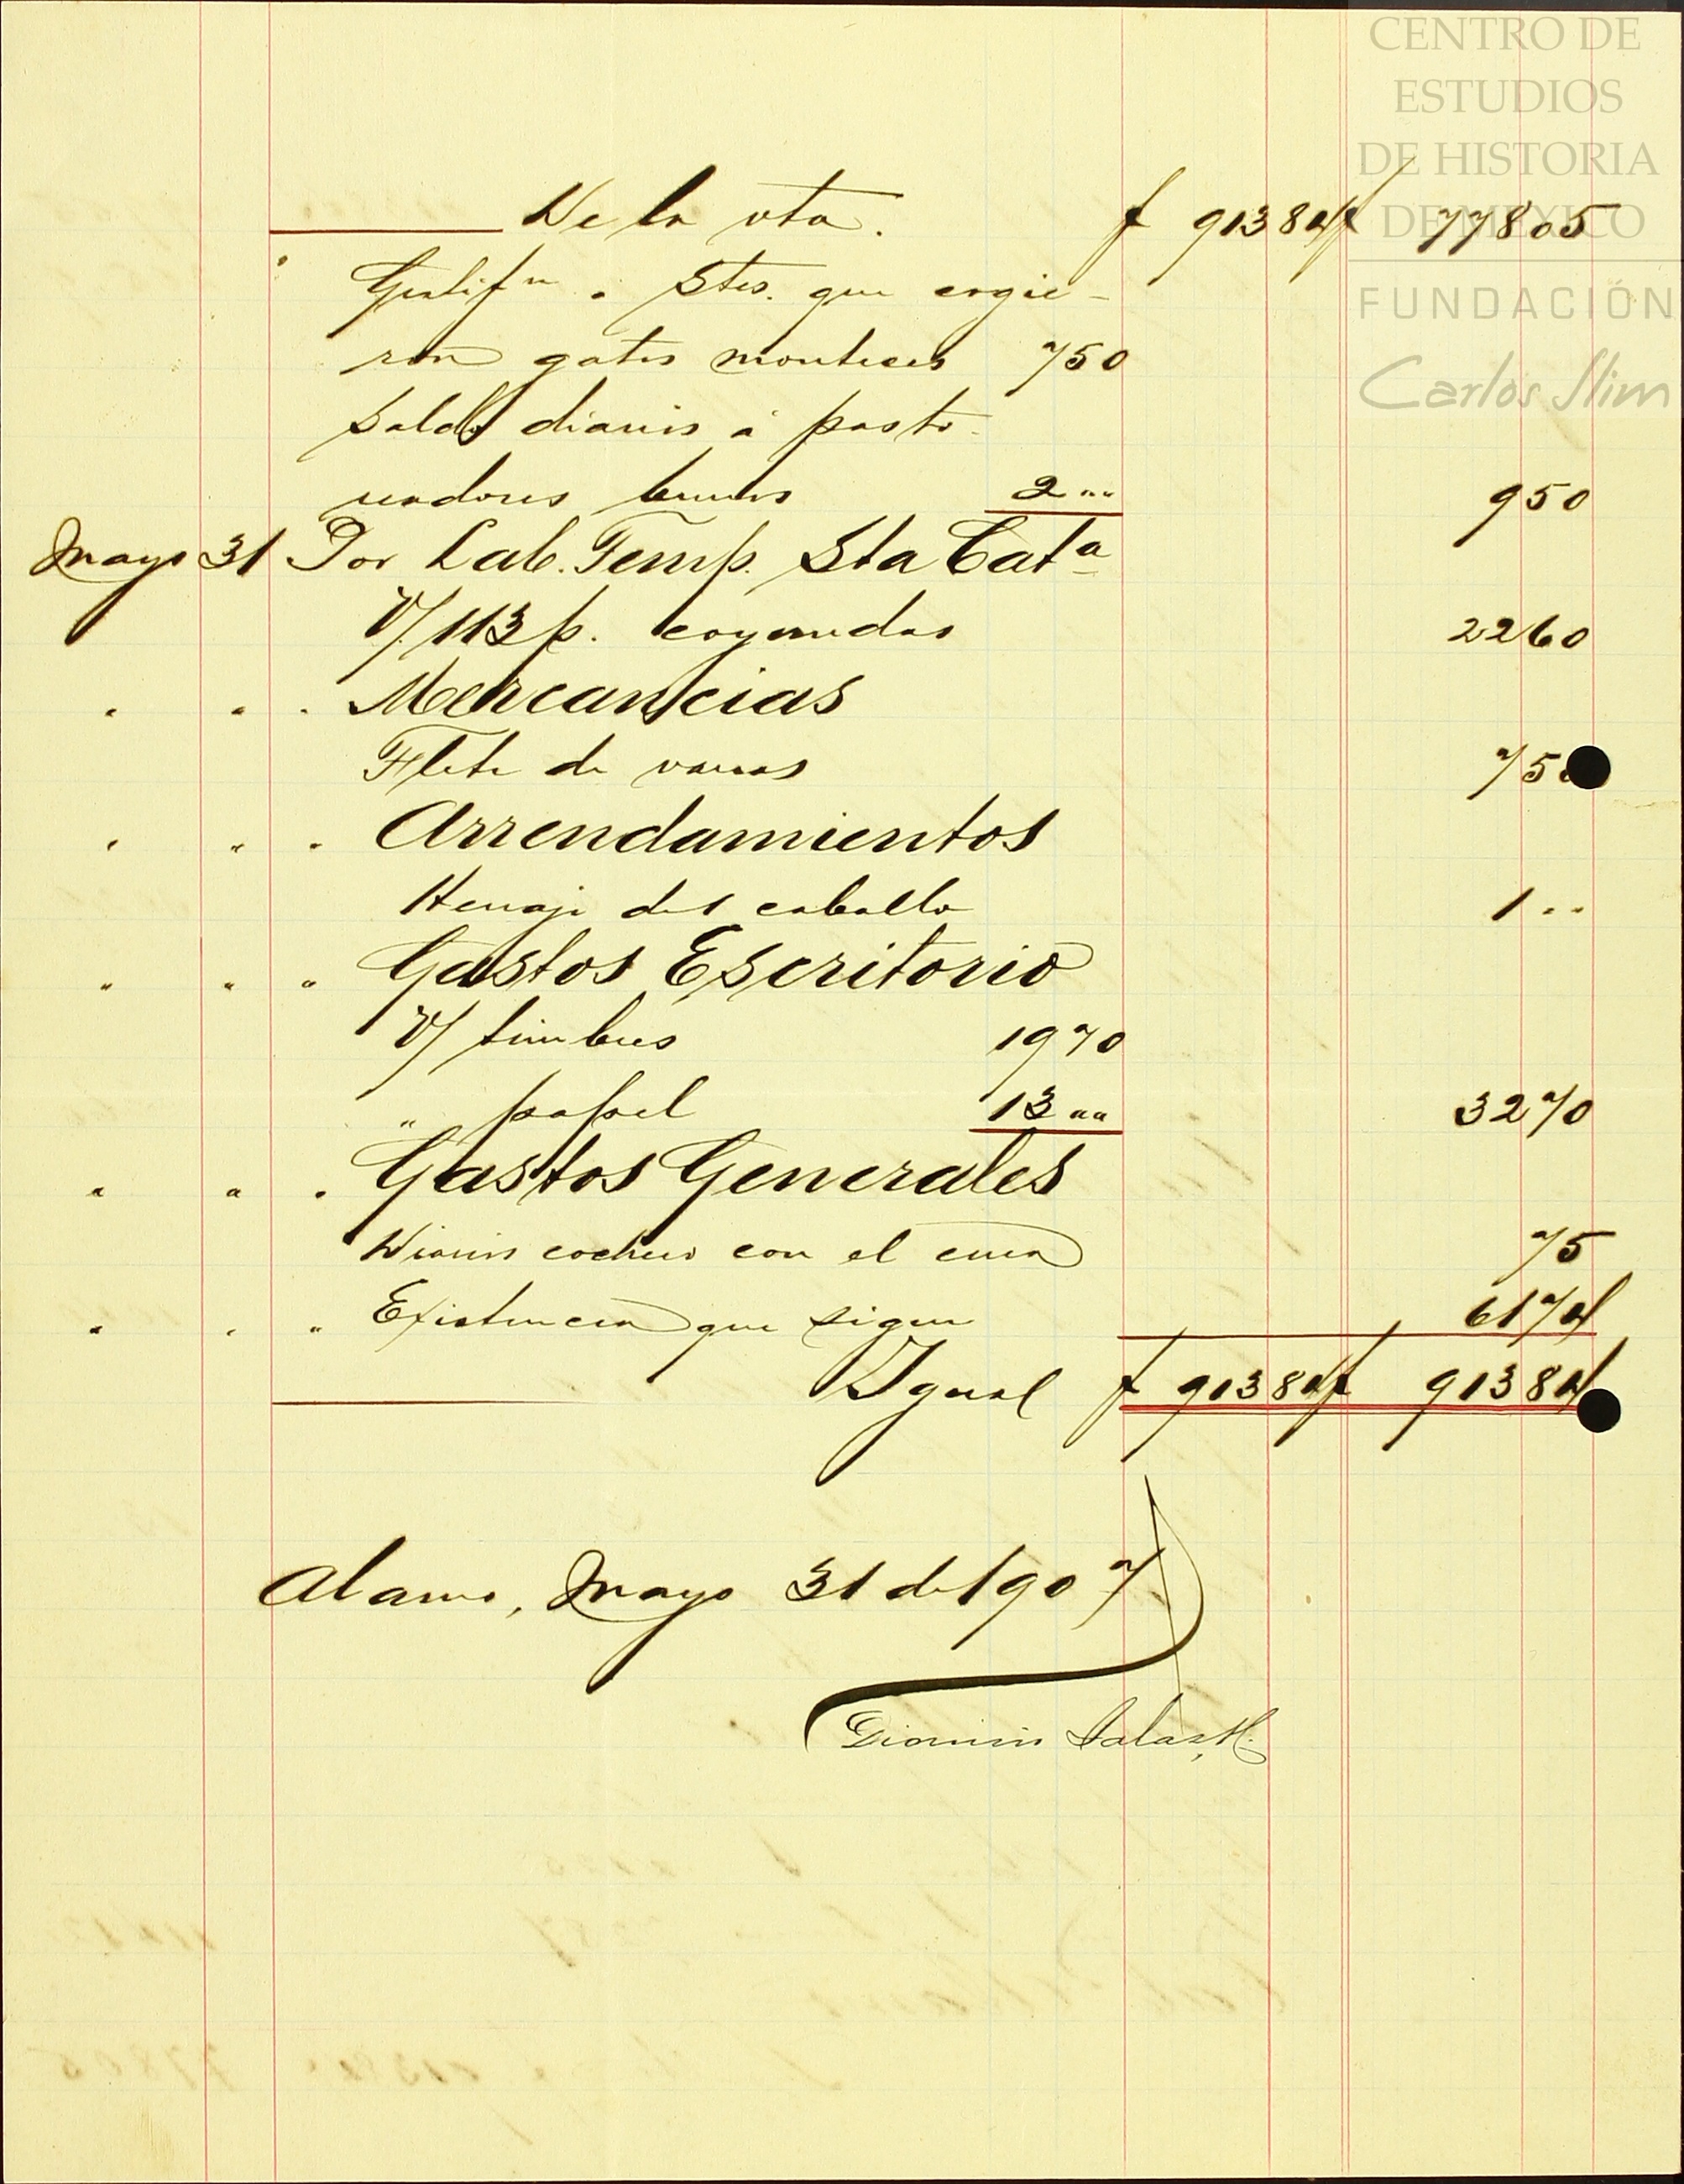 CENTRO DE
ESTUDIOS
DE HISTORIA
DE MÉXICO
FUNDACIÓN
Carlos Slim
De la vta. $ 91384 $ 77805
Gratifn a Stes. que cogie-
ron gatos monteses 750
Saldo diarios á pasto-
readores burros 2 " " 950
Mayo 31 Por Lab. Temp. Sta Cata
V/ 113 p. coyundas 2260
" " " Mercancias
Flete de varias 750
" " " Arrendamientos
Herraje del caballo 1 " "
" " " Gastos Escritorio
V/ timbres 1970
" papel 13 " " 3270
" " " Gastos Generales
Diarios cochero con el cura 75
" " " Existencia que sigue 6174
Igual $ 91384 $ 91384
Alamo, Mayo 31 de 1907
Dionisio Salas H.